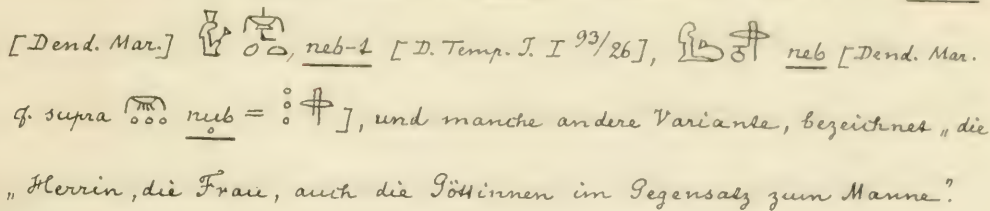 [Dend. Mar.] , neb-t [D. Temp. I. I 93/26], neb [Dend. Mar.
cf. supra nub = ], und manche andere Variante, bezeichnet „die
„Herrin, die Frau, auch die Göttinnen im Gegensatz zum Manne".